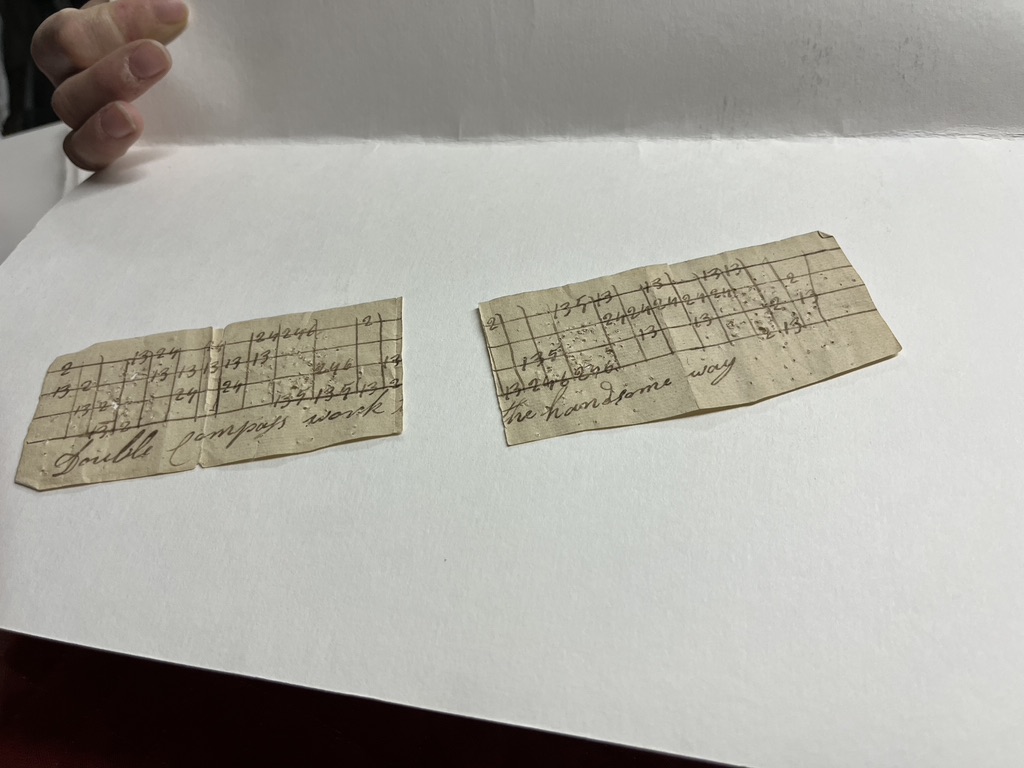 2 13 24 24 246 2
13 2 13 13 13 13 13 246 13
13 2 24 24 135 135 13 2
13 2
Double Compass work
2 135 13 13 13 13 2
24 24 24 24 24 2 13
135 13 13 2 13
13 246 246
the handsome way